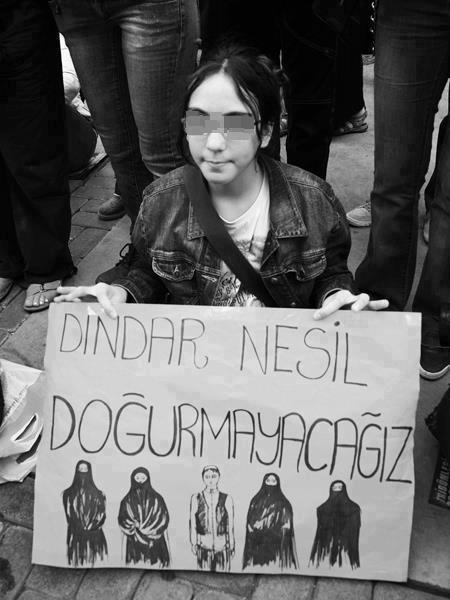 DİNDAR NESİL
DOĞURMAYACAĞIZ